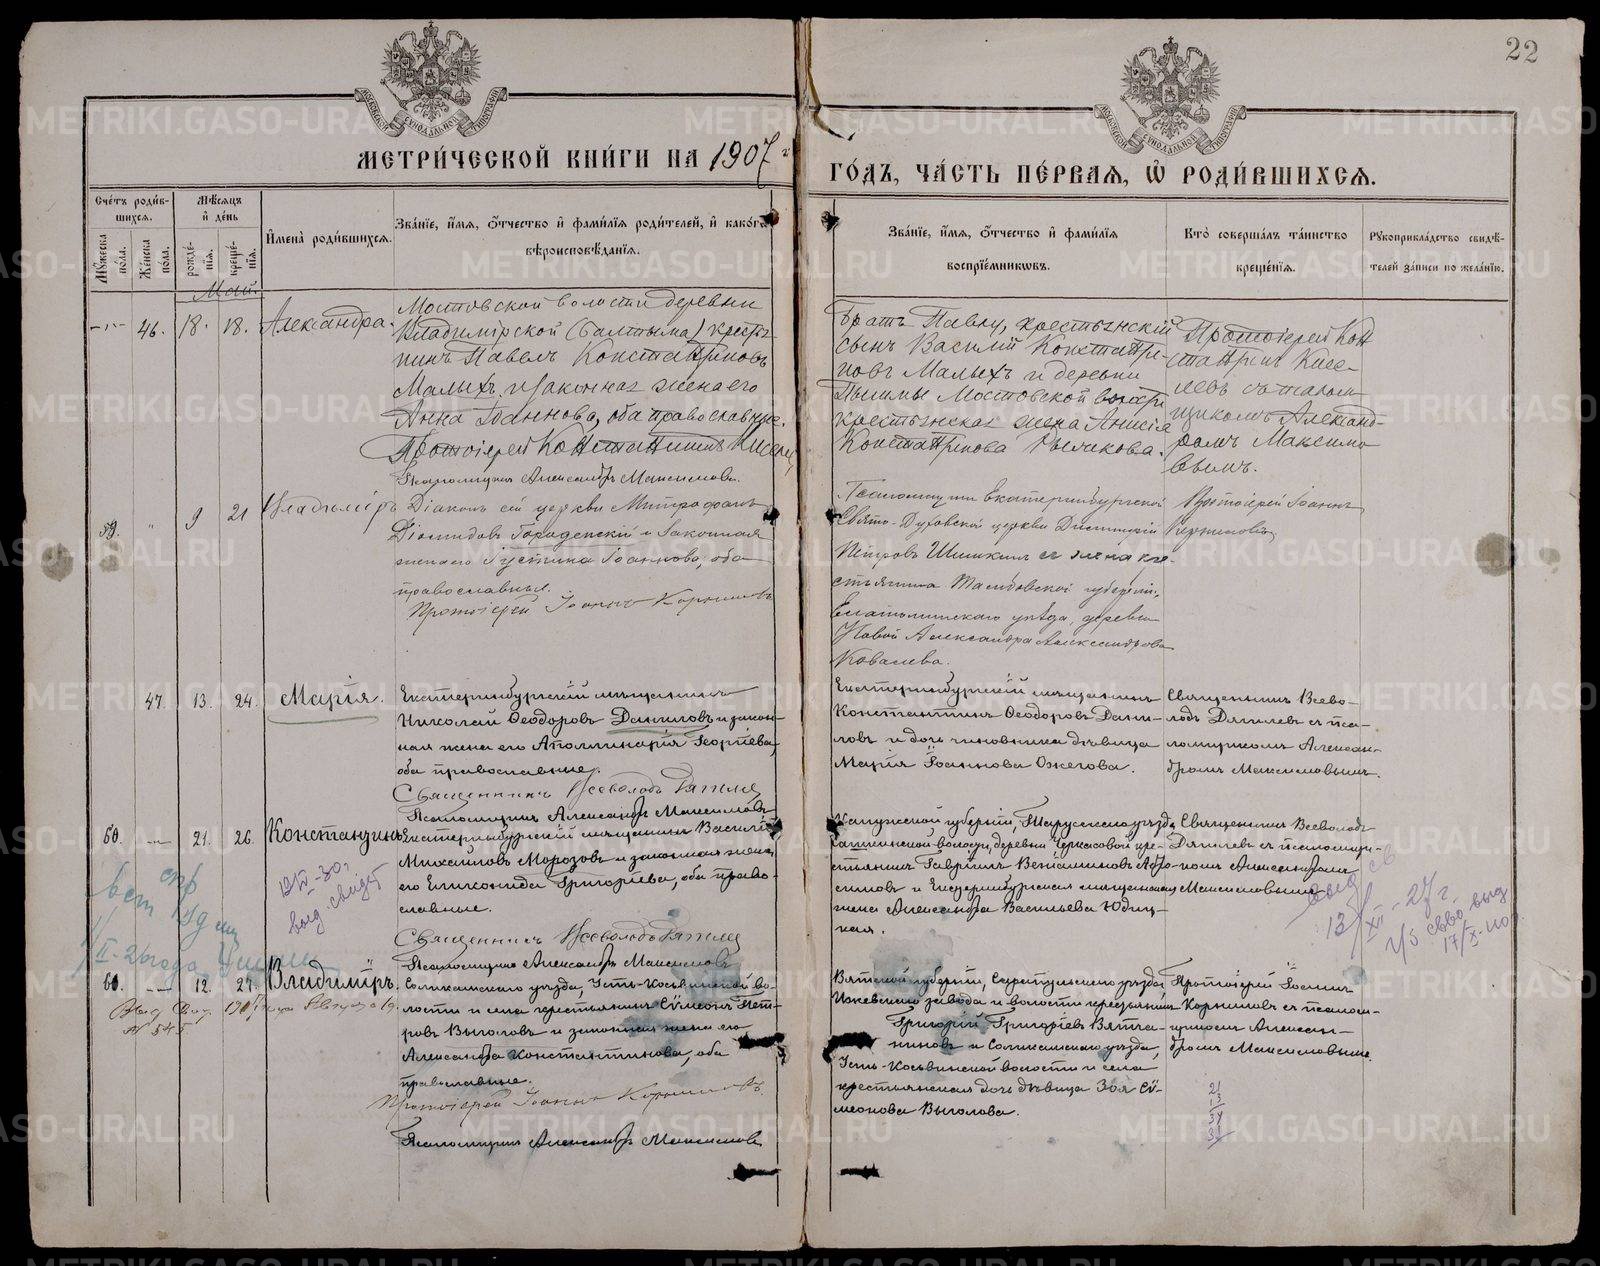 22
МОСКОВСКОЙ СУНОДАЛЬНОЙ ТИПОГРАФІИ
МЕТРИ́ЧЕСКОЙ КНИ́ГИ НА 1907 г
МОСКОВСКОЙ СУНОДАЛЬНОЙ ТИПОГРАФІИ
ГО́ДЪ, ЧА́СТЬ ПЕ́РВАЯ, Ѡ҆ РОДИ́ВШИХСЯ.
Сче́тъ роди́в-
шихся.
Мѣсяцъ
и де́нь
Мꙋ́жеска
по́ла.
Же́нска
по́ла.
рожде́-
нїя.
креще́-
нїя.
И҆мена̀ роди́вшихся.
Зва́нїе, и҆́мя, ѻ҆́тчество и҆ фамилїя роди́телей, и҆ како́гѡ
вѣроисповѣ́данїя.
Зва́нїе, и҆́мя, ѻ҆́тчество и҆ фами́лїя
воспрїе́мникѡвъ.
Кто̀ соверша́лъ та́инство
креще́нїя.
Рꙋкоприкла́дство свидѣ́-
телей за́писи по жела́нїю.
Май.
46. 18. 18. Александра.
Мостовской волости деревни
Владимірской (Балтыма) кресть
нинъ Павелъ Константиновъ
Малыхъ и законная жена его
Анна Іоаннова, оба православные.
Протоіерей Константинъ
Псаломщикъ Александръ Максимовъ.
Братъ Павлу, крестьянскій
сынъ Василій Константи-
новъ Малыхъ и деревни
Мостовской
крестьянская жена Анисія
Константинова
Протоіерей Кон
стантинъ Кисе-
левъ съ псалом
щикомъ Александ-
ромъ Максимо
вымъ.
59. " 9 21 Владиміръ
Діаконъ сей церкви Митрофанъ
Діомидовъ и законная
жена его Іустина Іоаннова, оба
православные.
Протоіерей Іоаннъ Корниловъ
Псаломщикъ Екатеринбургской
Свято-Духовской церкви Димитрій
Петровъ Шишкинъ и жена кре-
стьянина Тамбовской губерніи,
Елатомскаго уѣзда, деревни
Новой Александра Александрова
Ковалева.
Протоіерей Іоаннъ
Корниловъ
47. 13. 24. Марія.
Екатеринбургскій мѣщанинъ
Николай Ѳеодоровъ Даниловъ и закон-
ная жена его Аполлинарія Георгіева,
оба православные.
Священникъ Всеволодъ
Псаломщикъ Александръ Максимовъ
Екатеринбургскій мѣщанинъ
Константинъ Ѳеодоровъ Дани-
ловъ и дочь чиновника дѣвица
Марія Іоаннова Ожегова.
Священникъ Всево-
лодъ Дягилевъ съ пса-
ломщикомъ Алексан-
дромъ Максимовымъ.
60. — 21. 26. Константинъ
Екатеринбургскій мѣщанинъ Василій
Михайловъ Морозовъ и законная жена
его Еликонида Григоріева, оба право-
славные.
Священникъ Всеволодъ
Псаломщикъ Александръ Максимовъ
Калужской губерніи, Тарусскаго уѣзда,
волости, деревни Черкасовой кре-
стьянинъ Гавріилъ Веніаминовъ Абро-
симовъ и Екатеринбургская мѣщанская
жена Александра Васильева Юдиц-
кая.
Священникъ Всеволодъ
Дягилевъ съ псаломщи-
комъ Александромъ
Максимовымъ
выд. свидет
13/XII - 27 г.
17/X
60. — 12. 27. Владиміръ.
Соликамскаго уѣзда, Усть-Косьвинской во-
лости и села крестьянинъ Сѵмеонъ Пет-
ровъ Выголовъ и законная жена его
Александра Константинова, оба
православные.
Протоіерей Іоаннъ Корниловъ.
Псаломщикъ Александръ Максимовъ
Вятской губерніи, Сарапульскаго уѣзда,
Ижевскаго завода и волости крестьянинъ
Григорій Григоріевъ Вятча-
ниновъ и Соликамскаго уѣзда,
Усть-Косьвинской волости и села
крестьянская дочь дѣвица Зоя Сѵ-
меонова Выголова.
Протоіерей Іоаннъ
Корниловъ съ псалом-
щикомъ Алексан-
дромъ Максимовымъ.
21
13
34
METRIKI.GASO-URAL.RU